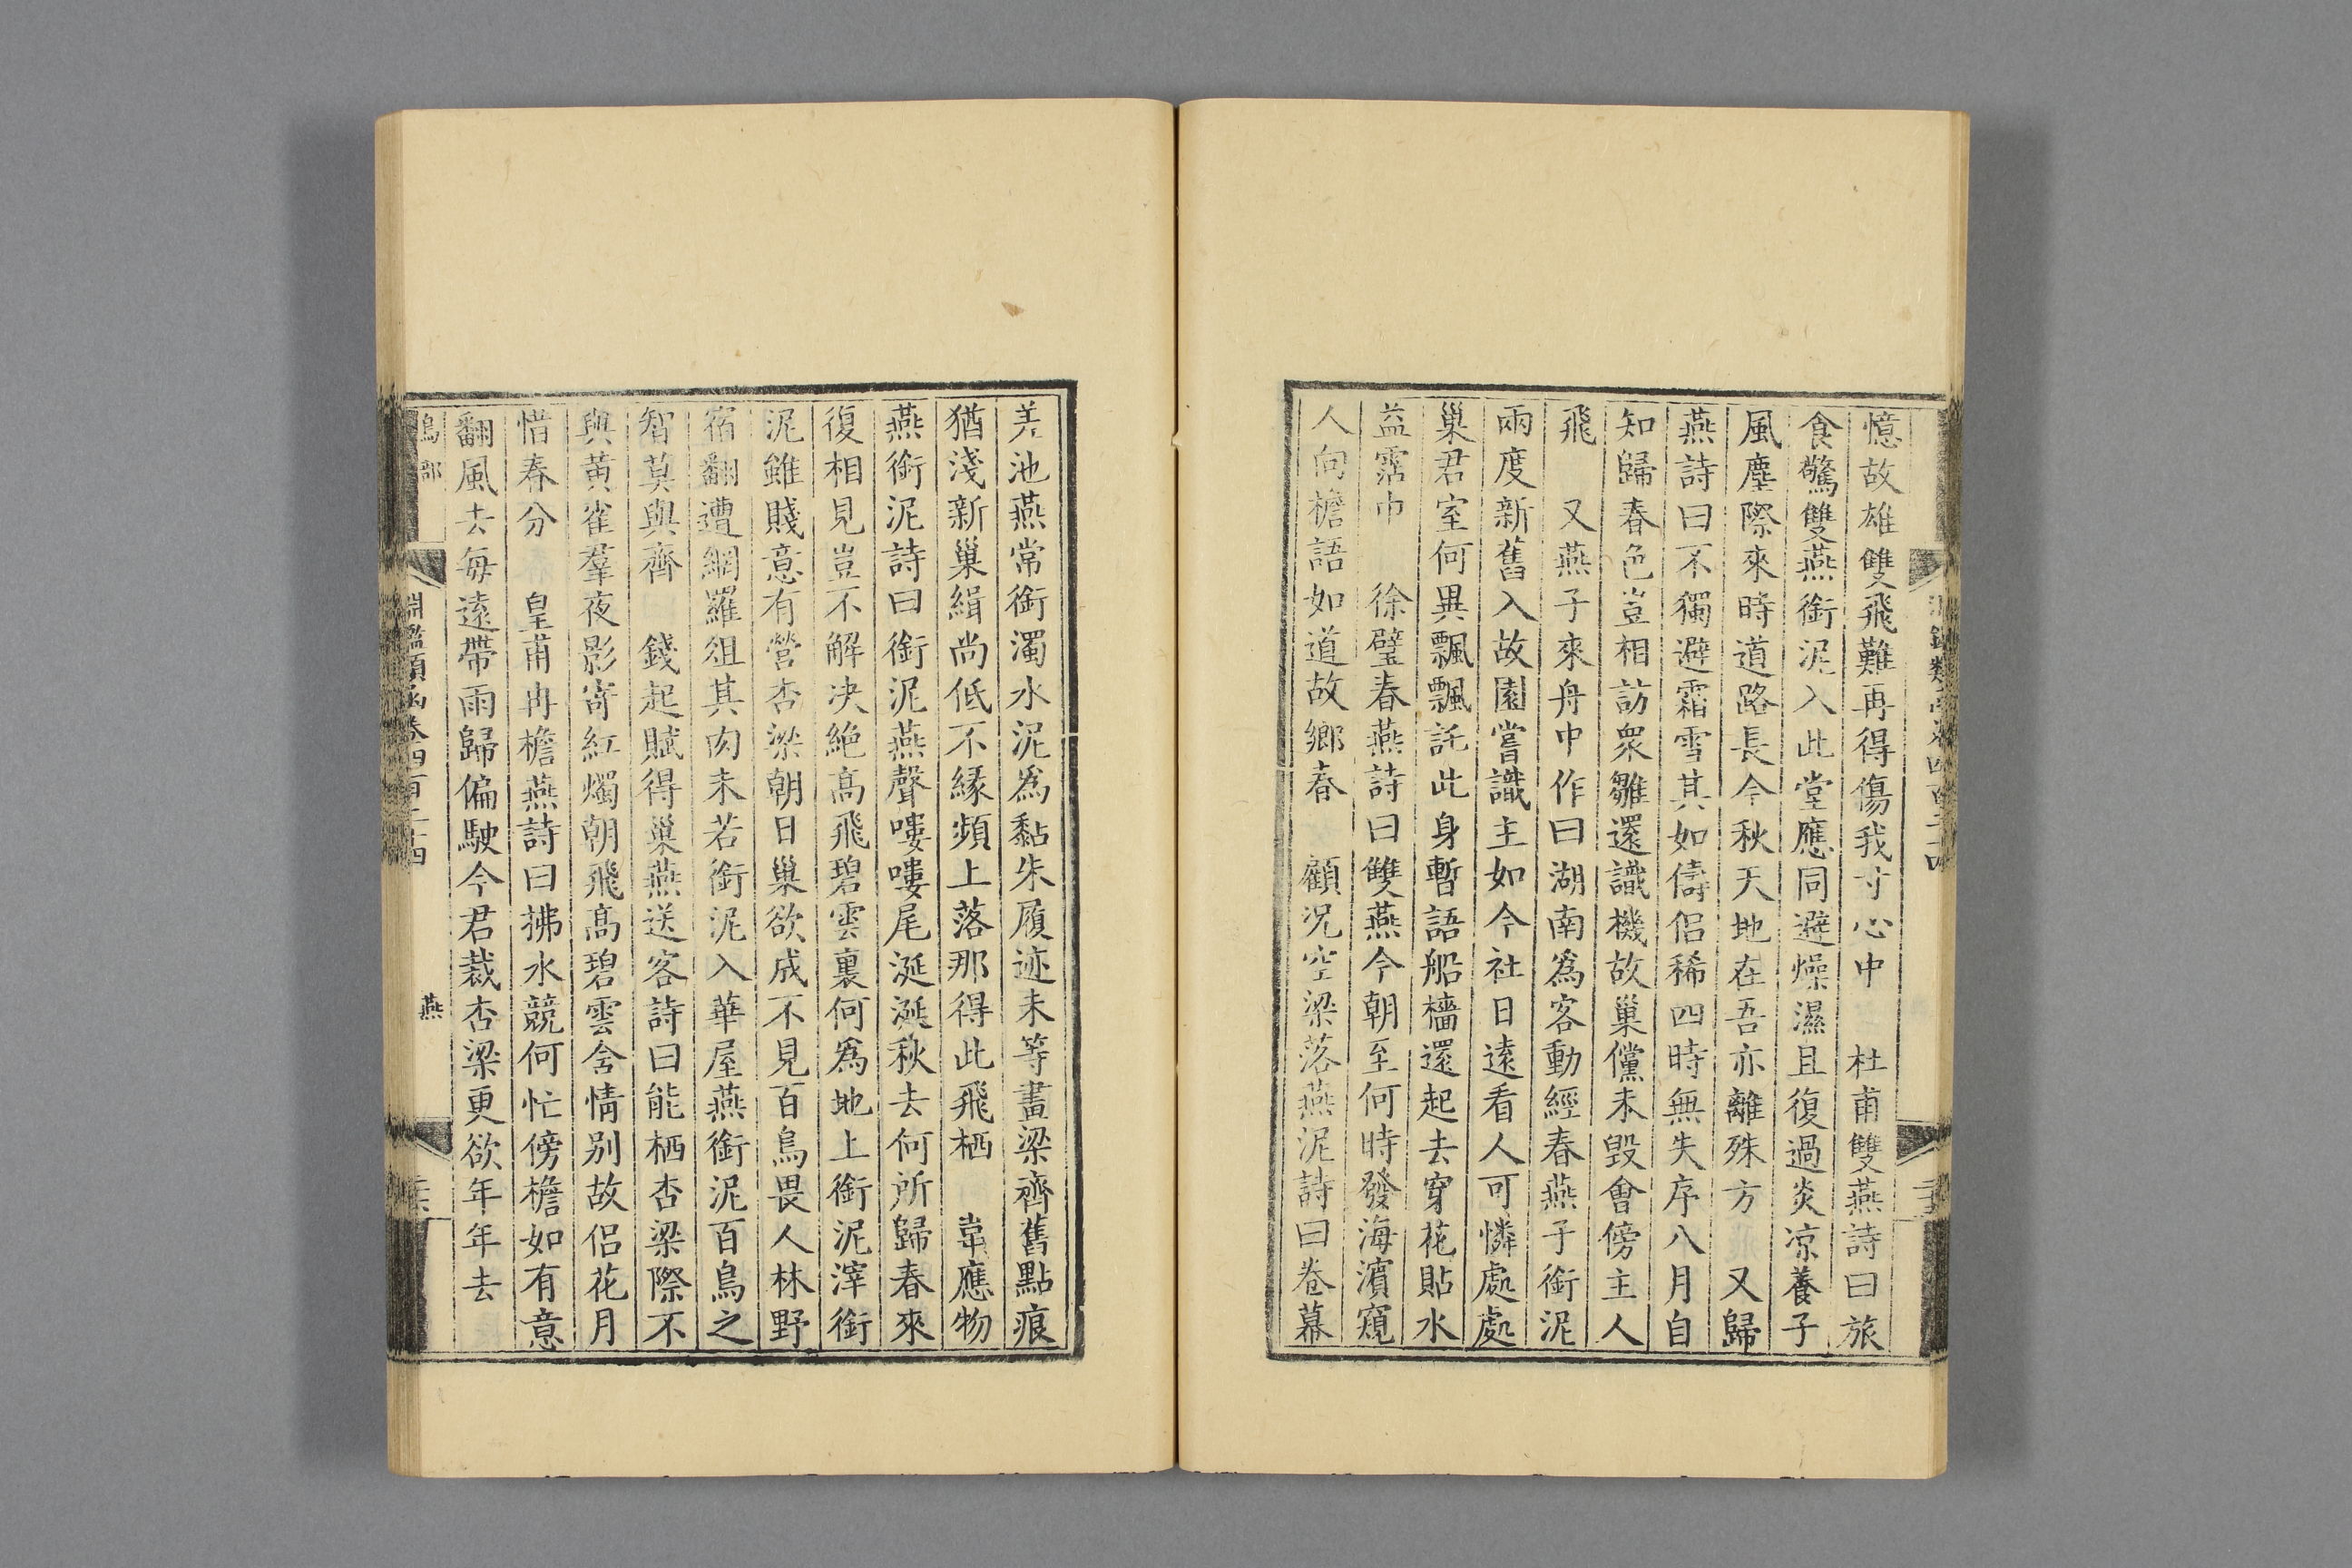 憶故雄雙飛難再得傷我寸心中　杜甫雙燕詩曰旅
食驚雙燕銜泥入此堂應同避燥濕且復過炎凉養子
風塵際來時道路長今秋天地在吾亦離殊方　又歸
燕詩曰不獨避霜雪其如儔侶稀四時無失序八月自
知歸春色豈相訪衆雛還識機故巢儻未毀會傍主人
飛　又燕子來舟中作曰湖南爲客動經春燕子銜泥
兩度新舊入故園嘗識主如今社日遠看人可憐處處
巢君室何異飄飄託此身暫語船檣還起去穿花貼水
益霑巾　徐璧春燕詩曰雙燕今朝至何時發海濱窺
人向檐語如道故鄉春　顧況空梁落燕泥詩曰卷幕
差池燕常銜濁水泥爲黏朱履迹未等畫梁齊舊點痕
猶淺新巢緝尚低不緣頻上落那得此飛栖　韋應物
燕銜泥詩曰銜泥燕聲嘍嘍尾涎涎秋去何所歸春來
復相見豈不解决絶高飛碧雲裏何爲地上銜泥滓銜
泥雖賤意有營杏梁朝日巢欲成不見百鳥畏人林野
宿翻遭網羅俎其肉未若銜泥入華屋燕銜泥百鳥之
智莫與齊　錢起賦得巢燕送客詩曰能栖杏梁際不
與黃雀羣夜影寄紅燭朝飛高碧雲含情别故侶花月
惜春分　皇甫冉檐燕詩曰拂水競何忙傍檐如有意
翻風去每遠帶雨歸偏駛今君裁杏梁更欲年年去
鳥部　淵鑑類函卷四百二十四　燕